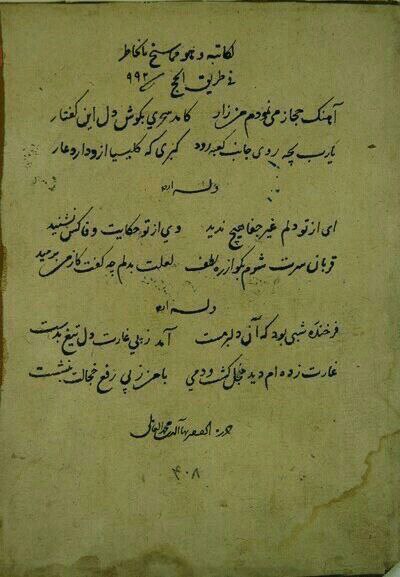 لكاتبه و هو مما سنح بالخاطر
في طريق الحج ٩٩٢
آهنک حجاز می نمودم من زار کامد سحری بکوش دل این کفتار
یارب بچه روی جانب کعبه رود کبری که کلیسیا ازو دارد عار
وله ایضا
ای از تو دلم غیر جفا هیچ ندید وی از تو حکایت وفا کس نشنید
قربان سرت شوم بکو از ره لطف لعلت بدلم چه کفت کز من برمید
وله ایضا
فرخنده شبی بود که آن دلبر مست آمد ز پی غارت دل تیغ بدست
غارت زده ام دید خجل کشت و دمی با من ز پی رفع خجالت بنشست
بهاء الدين محمد العاملي
٤٠٨